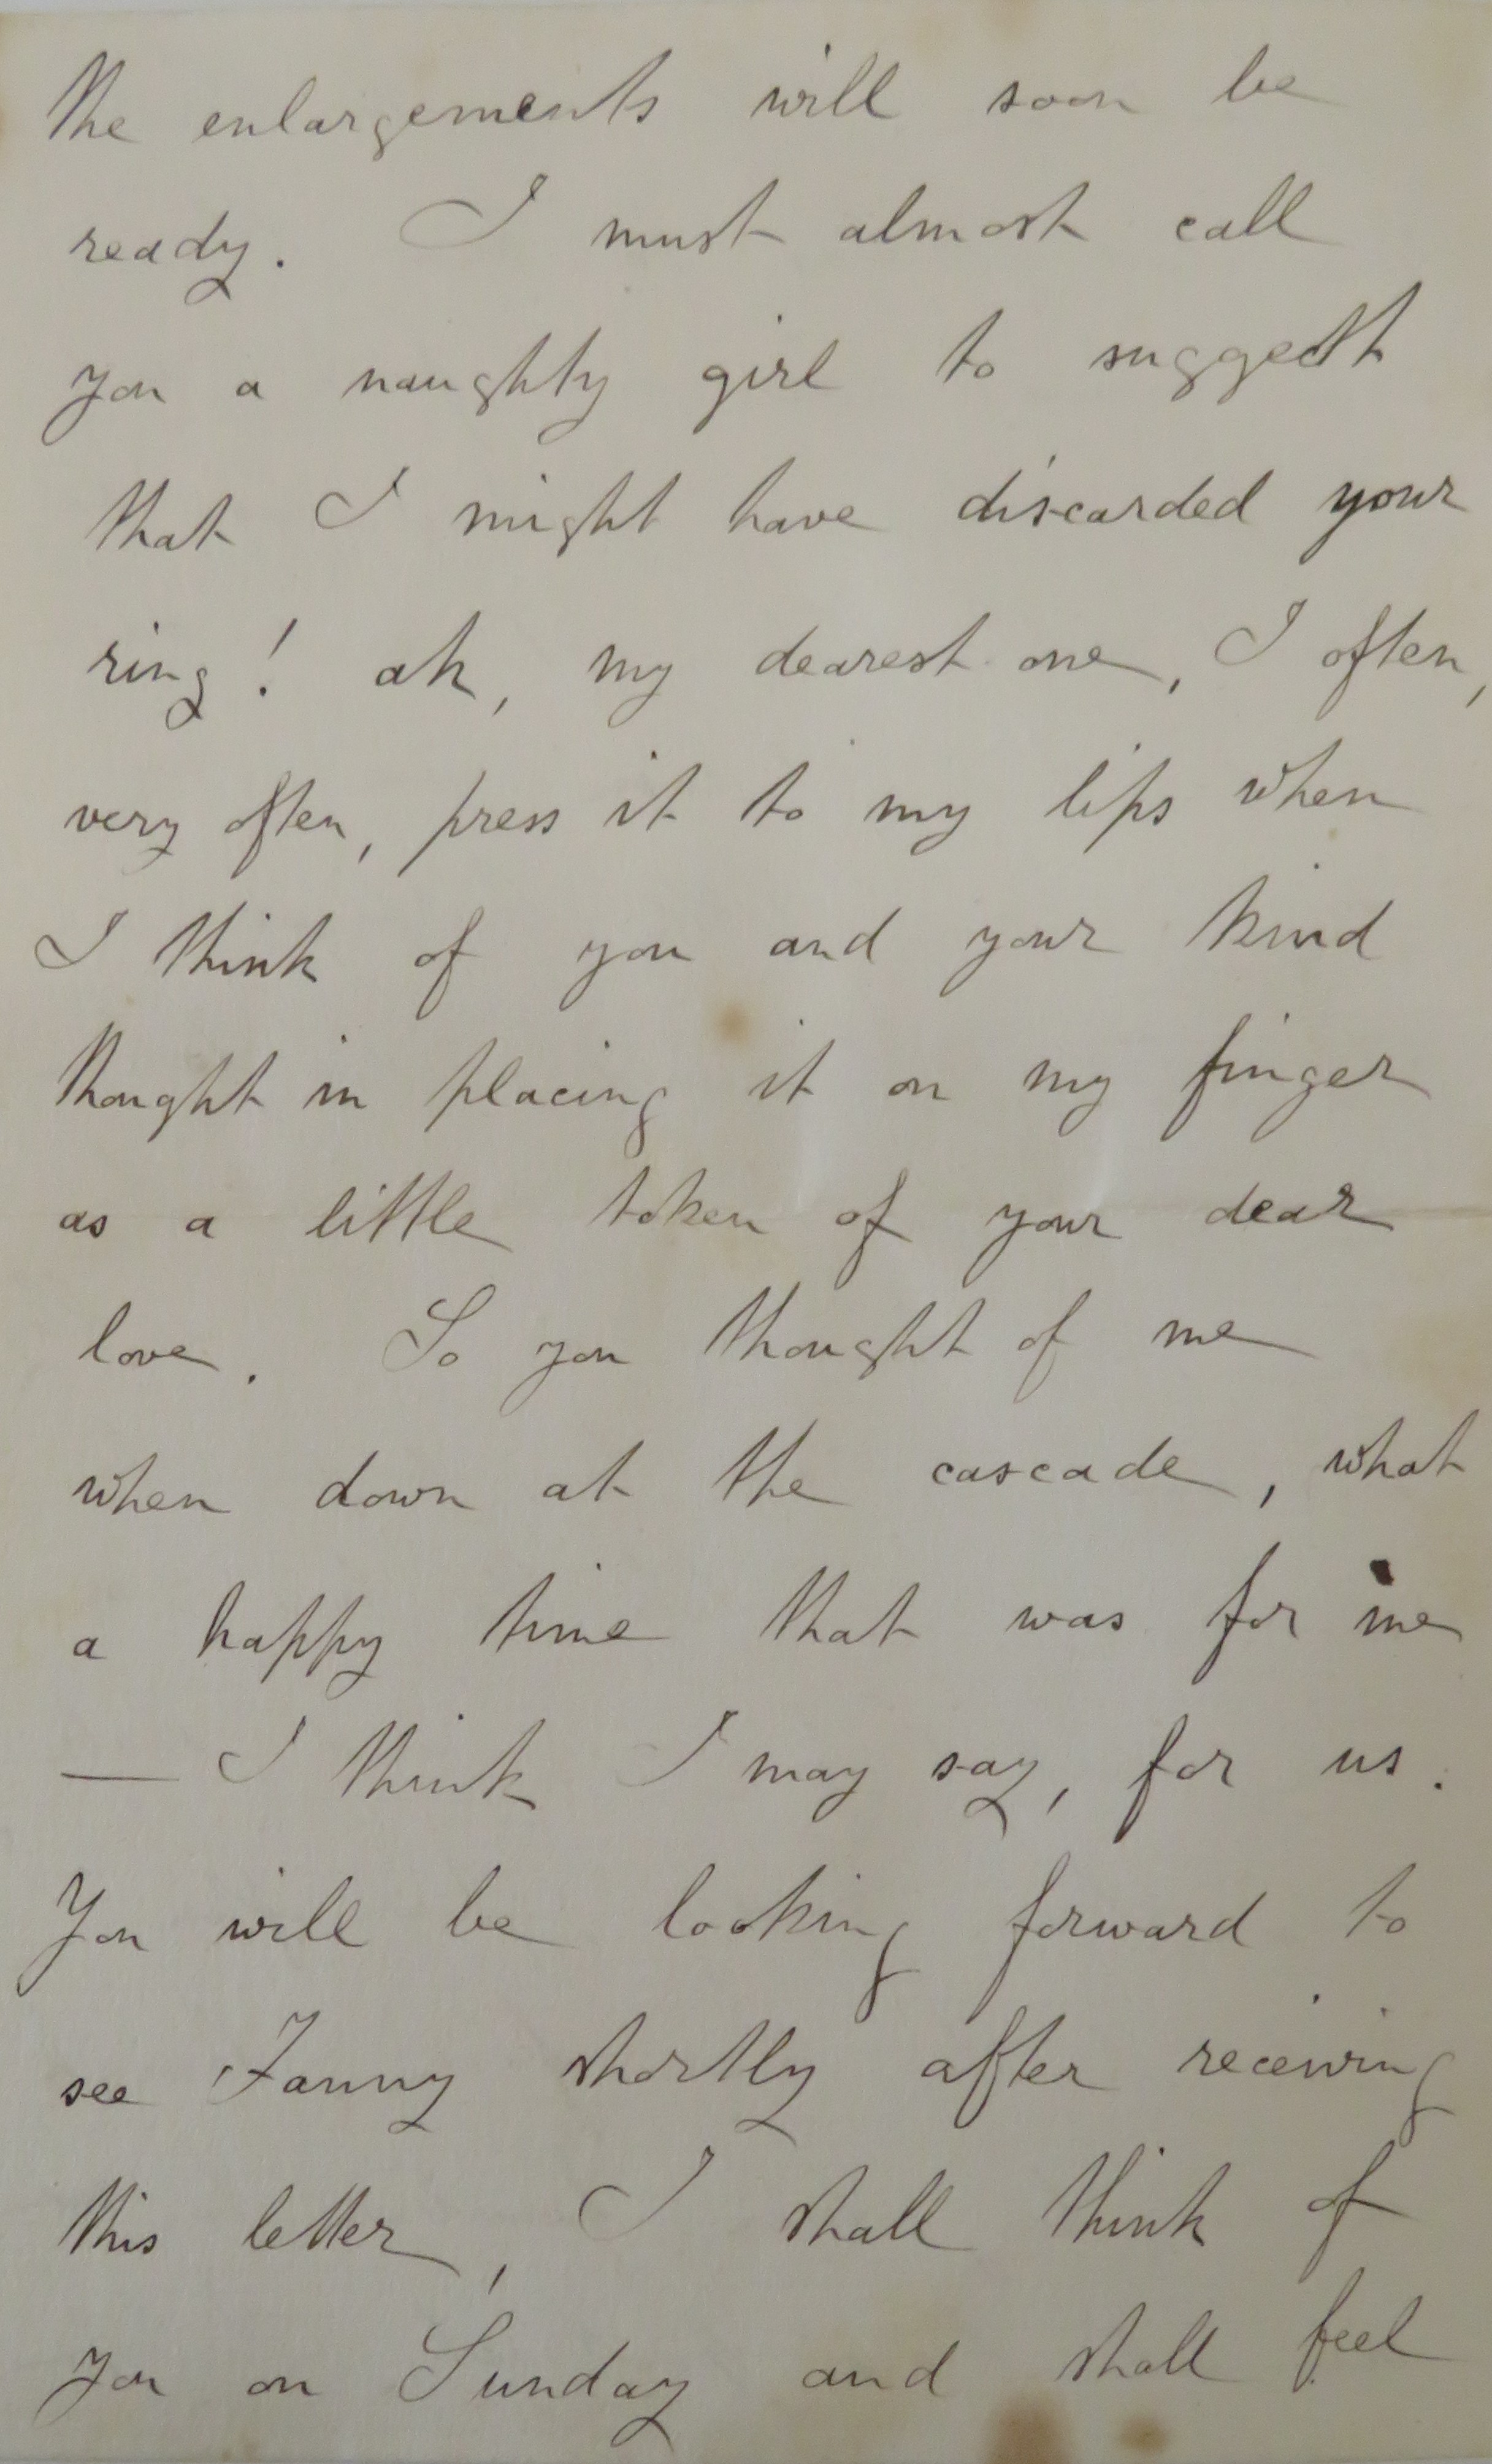 The enlargements will soon be
ready. I must almost call
you a naughty girl to suggest
that I might have discarded your
ring! ah, my dearest one, I often,
very often, press it to my lips when
I think of you and your kind
thought in placing it on my finger
as a little token of your dear
love. So you thought of me
when down at the cascade, what
a happy time that was for me
— I think I may say, for us.
You will be looking forward to
see Fanny shortly after receiving
this letter, I shall think of
you on Sunday and shall feel